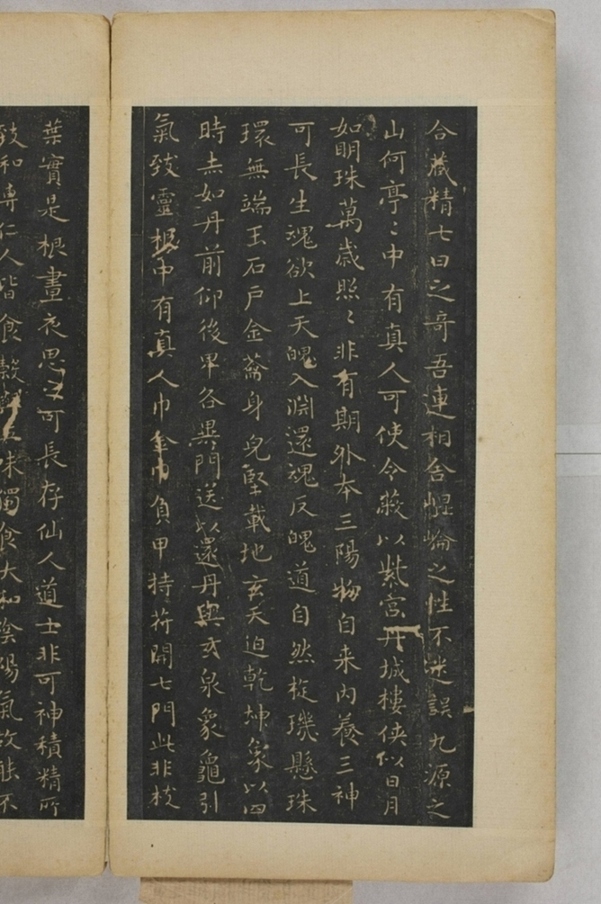 合藏精七日之奇吾連相舍惺崘之性不迷誤九源之
山何亭〻中有真人可使令蔽以紫宮丹城樓俠以日月
如明珠萬歲照〻非有期外本三陽物自来内養三神
可長生魂欲上天魄入淵還魂反魄道自然琁璣懸珠
環無端玉石戶金籥身兒堅載地玄天迫乾坤象以四
時赤如丹前仰後卑各異門送以還丹與玄泉象龜引
氣致靈根中有真人巾金巾負甲持符開七門此非枝
葉實是根晝夜思之可長存仙人道士非可神積精所
致和專仁人皆食穀與五味獨食大和陰陽氣故能不